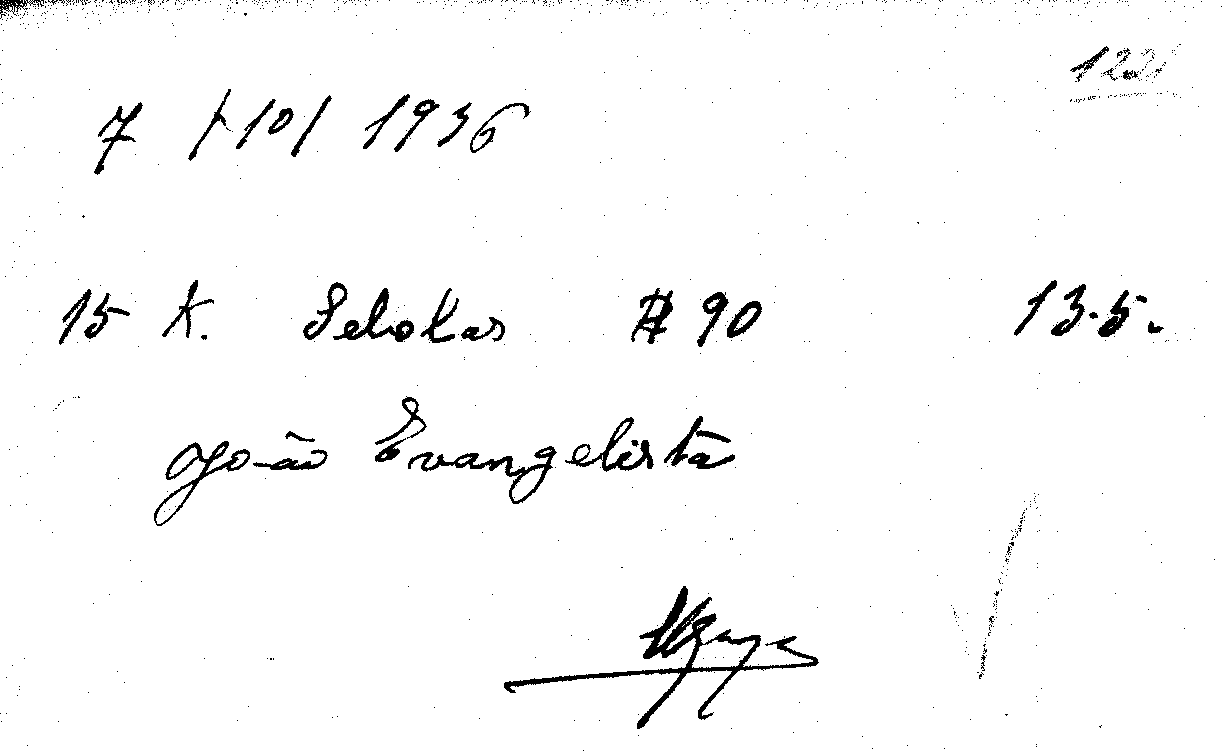 122
7 / 10 / 1936
15 K. Sebolas # 90 13.5.
João Evangelista